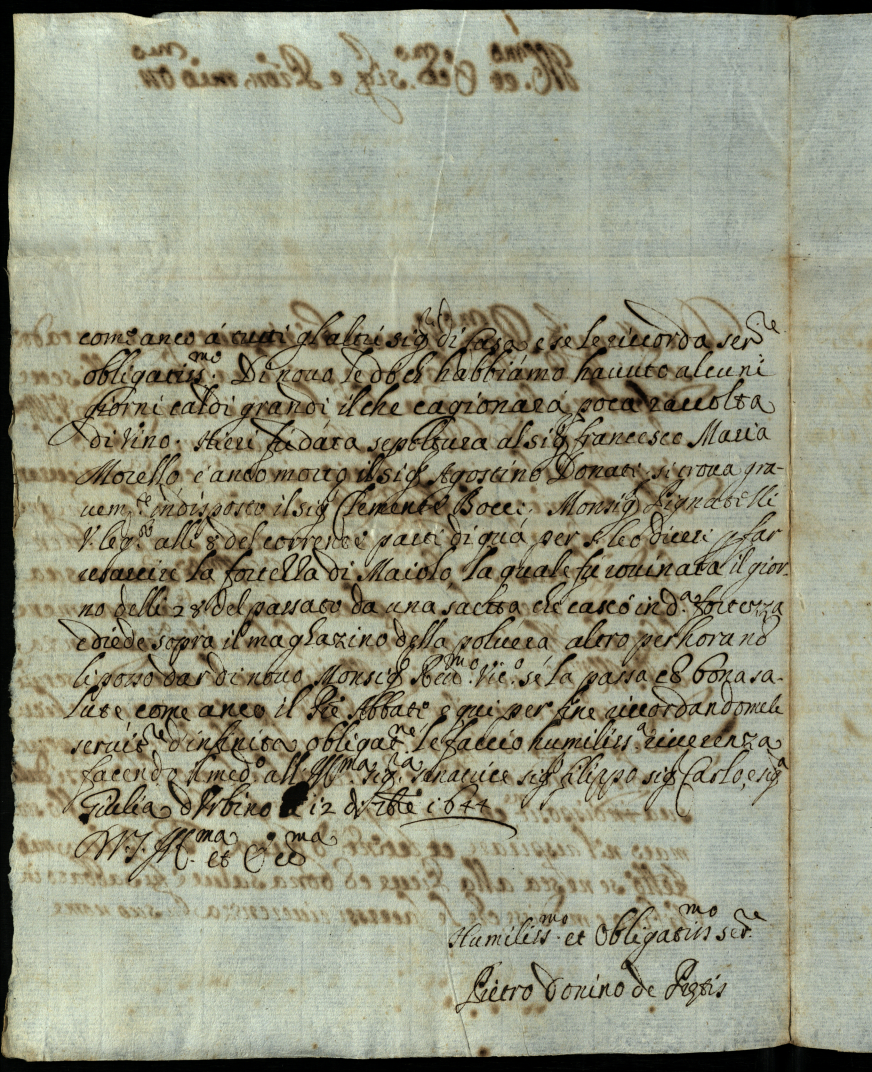 come anco á tutti gl'altri sig.ri di casa e se le riccorda ser.re
obligatiss.mo. Di novo le dò ch habbiámo havuto alcuni
giorni caldi grandi il che cagionará poca raccolta
di vino. Hieri fu data sepoltura al sig.r Francesco Maria
Morello é anco morto il sig.r Agostino Donati si trova gra-
vem.te indisposto il sig.r Clemente Bocci. Monsig.r Pignatelli
V. leg.to alli 8 del corrente partì di quá per S. Leo diceri p far
resarcire la fortezza di Maiolo la quale fu rovinata il gior-
no delli 28 del passato da una saetta che cascó in d.a fortezza
e diede sopra il maghazino della polvera altro per hora nò
li posso dar di novo Monsig.r Rev.mo Vic.o sé la passa cò bona sa-
lute come anco il Pre Abbate e qui per fine riccordandomele
servit.re d'infinite obligat.ne le faccio humiliss.a riverenza
facendo il med.o all Ill.ma sig.ra senatrice sig.r Filippo sig.r Carlo, e sig.a
Giulia d'Urbino li 12 d'7bre 1644
D V. S. Ill.ma et Ecc.ma
Humiliss.mo et Obligatiss.mo ser.re
Pietro Donino de